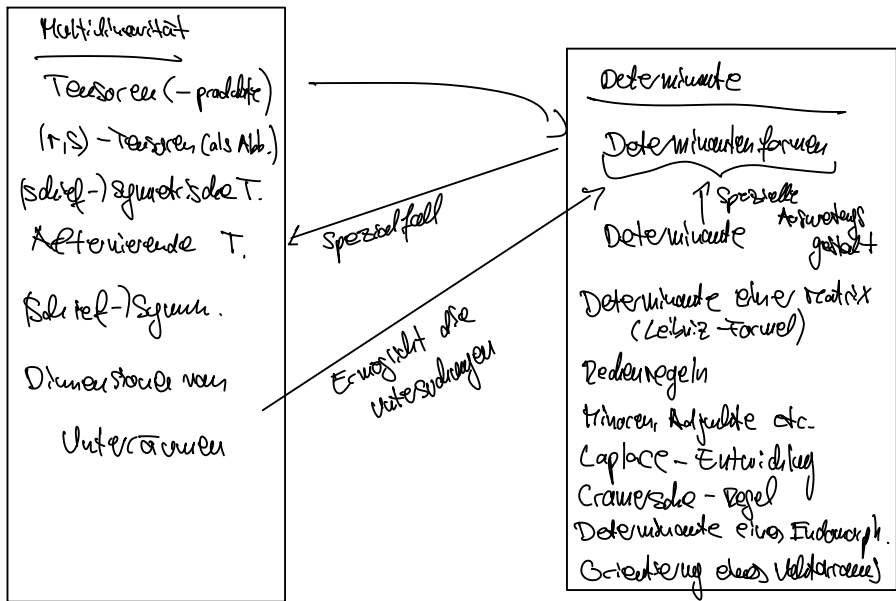 Multilinearität
Tensoren (-produkte)
(r,s) - Tensoren (als Abb.)
(schief-) symmetrische T.
Alternierende T.
(Schief-) Symm.
Dimensionen von
Unterräumen
Spezialfall
Ermöglicht die
Untersuchungen
Determinante
Determinantenformen
Spezielle
Determinante
Determinante einer Matrix
(Leibniz-Formel)
Rechenregeln
Minoren, Adjunkte etc.
Laplace-Entwicklung
Cramersche-Regel
Determinante eines Endomorph.
Orientierung eines Vektorraums